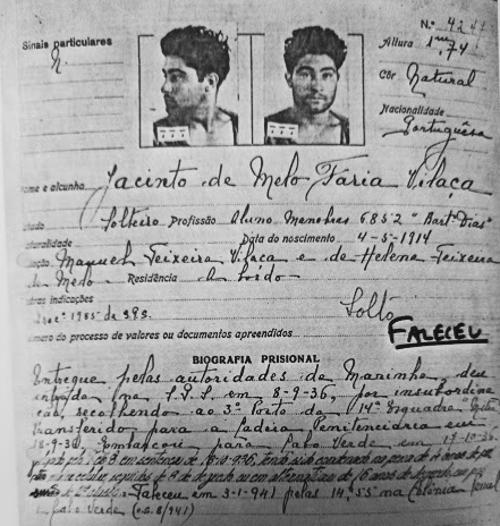 N.º 4241
Sinais particulares
Altura 1m,74
Côr Natural
Nacionalidade
Portuguêsa
ome e alcunha Jacinto de Melo Faria Vilaça
stado Solteiro Profissão Aluno Manobras 6852 "Bart. Dias"
turalidade Data do nascimento 4-5-1914
iação Manuel Teixeira Vilaça e de Helena Teixeira
de Melo Residência A bordo
utras indicações
Proc.º 1955 de 936. Soltº
úmero do processo de valores ou documentos apreendidos
FALECEU
BIOGRAFIA PRISIONAL
Entregue pelas autoridades de Marinha, deu
entrada na em 8-9-36, por insubordina
ção, recolhendo ao 3.º Posto da 14ª Esquadra
Transferido para a Cadeia Penitenciária em
18-9-36. Embarcou para Cabo Verde em 17-10-36
em sentença de tendo sido condenado na pena de anos de
seguidos de 8 de degredo ou em alternativa de 16 anos de degredo em
Faleceu em 3-1-941 pelas 14,55 na Colónia Penal
de Cabo Verde (o.s. 8/941)